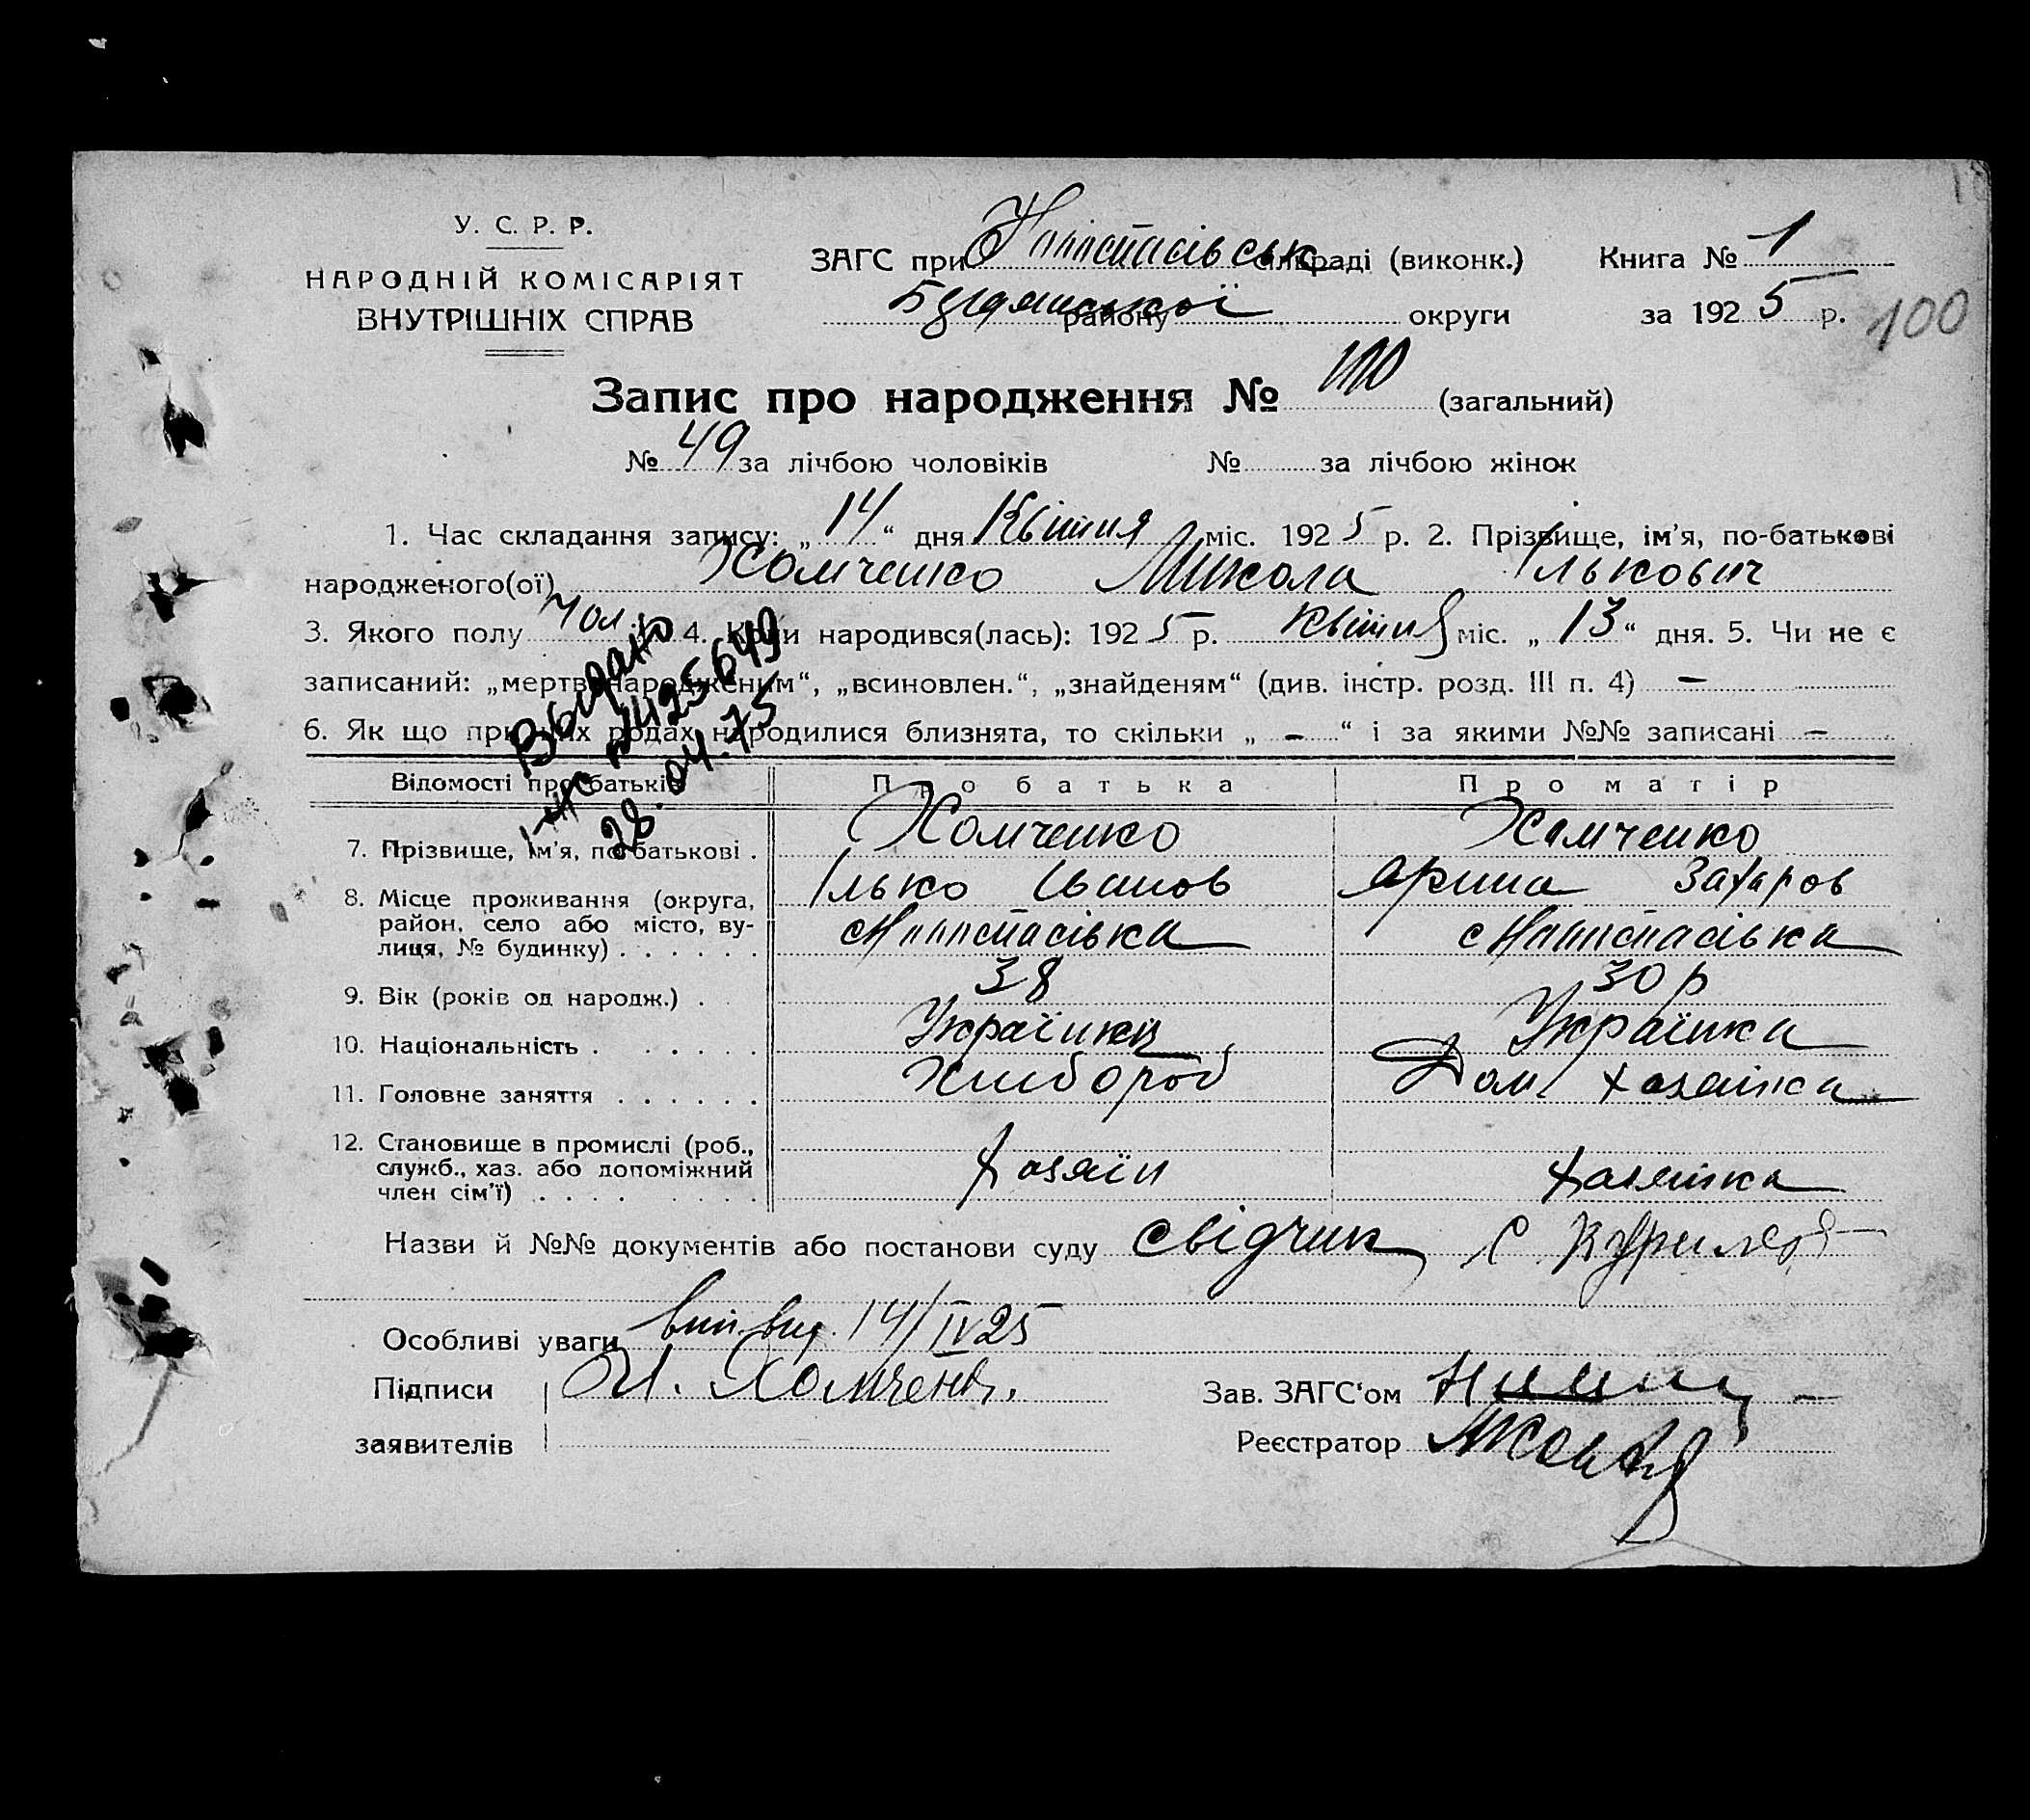 У. С. Р. Р.
НАРОДНІЙ КОМІСАРІЯТ
ВНУТРІШНІХ СПРАВ
ЗАГС при сільраді (виконк.)
району округи
Книга № 1
за 1925 р.
100
Запис про народження № 100 (загальний)
№ 49 за лічбою чоловіків № за лічбою жінок
1. Час складання запису: „14“ дня Квітня міс. 1925 р. 2. Прізвище, ім’я, по-батькові
народженого(ої) Хомченко Микола Ількович
3. Якого полу чол 4. Коли народився(лась): 1925 р. Квітня міс. „13“ дня. 5. Чи не є
записаний: „мертвонародженим“, „всиновлен.“, „знайденям“ (див. інстр. розд. III п. 4) —
6. Як що при цих родах народилися близнята, то скільки „ — “ і за якими №№ записані —
Выдано
№ 425649
28.04.75
Відомості про батьків Про батька Про матір
7. Прізвище, ім’я, по-батькові . Хомченко Хомченко
Ілько Іванов Ярина Захаров
8. Місце проживання (округа,
район, село або місто, ву-
лиця, № будинку) . . . . . . с Анастасівка с Анастасівка
9. Вік (років од народж.) . 38 30 р
10. Національність . . . . . . Українка
11. Головне заняття . . . . . . Хлібороб Дом хазяйка
12. Становище в промислі (роб.,
служб., хаз. або допоміжний
член сім’ї) . . . . . . . . хазяїн хазяйка
Назви й №№ документів або постанови суду
Особливі уваги 14/IV 25
Підписи
заявителів
Зав. ЗАГС‘ом
Реєстратор